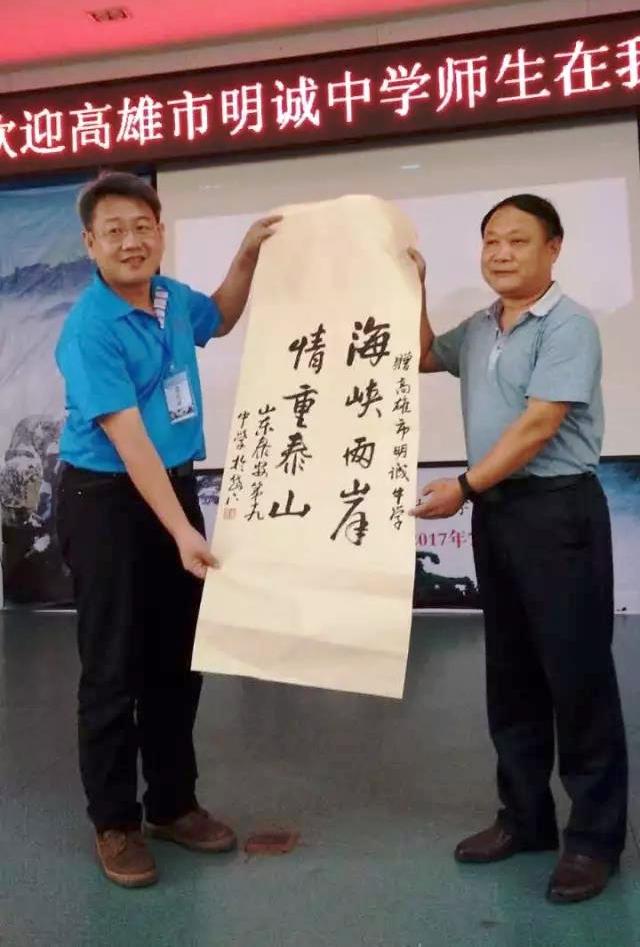 欢迎高雄市明诚中学师生在我
赠高雄市明诚中学
海峡两岸
情重泰山
山东泰安第九
中学
2017年